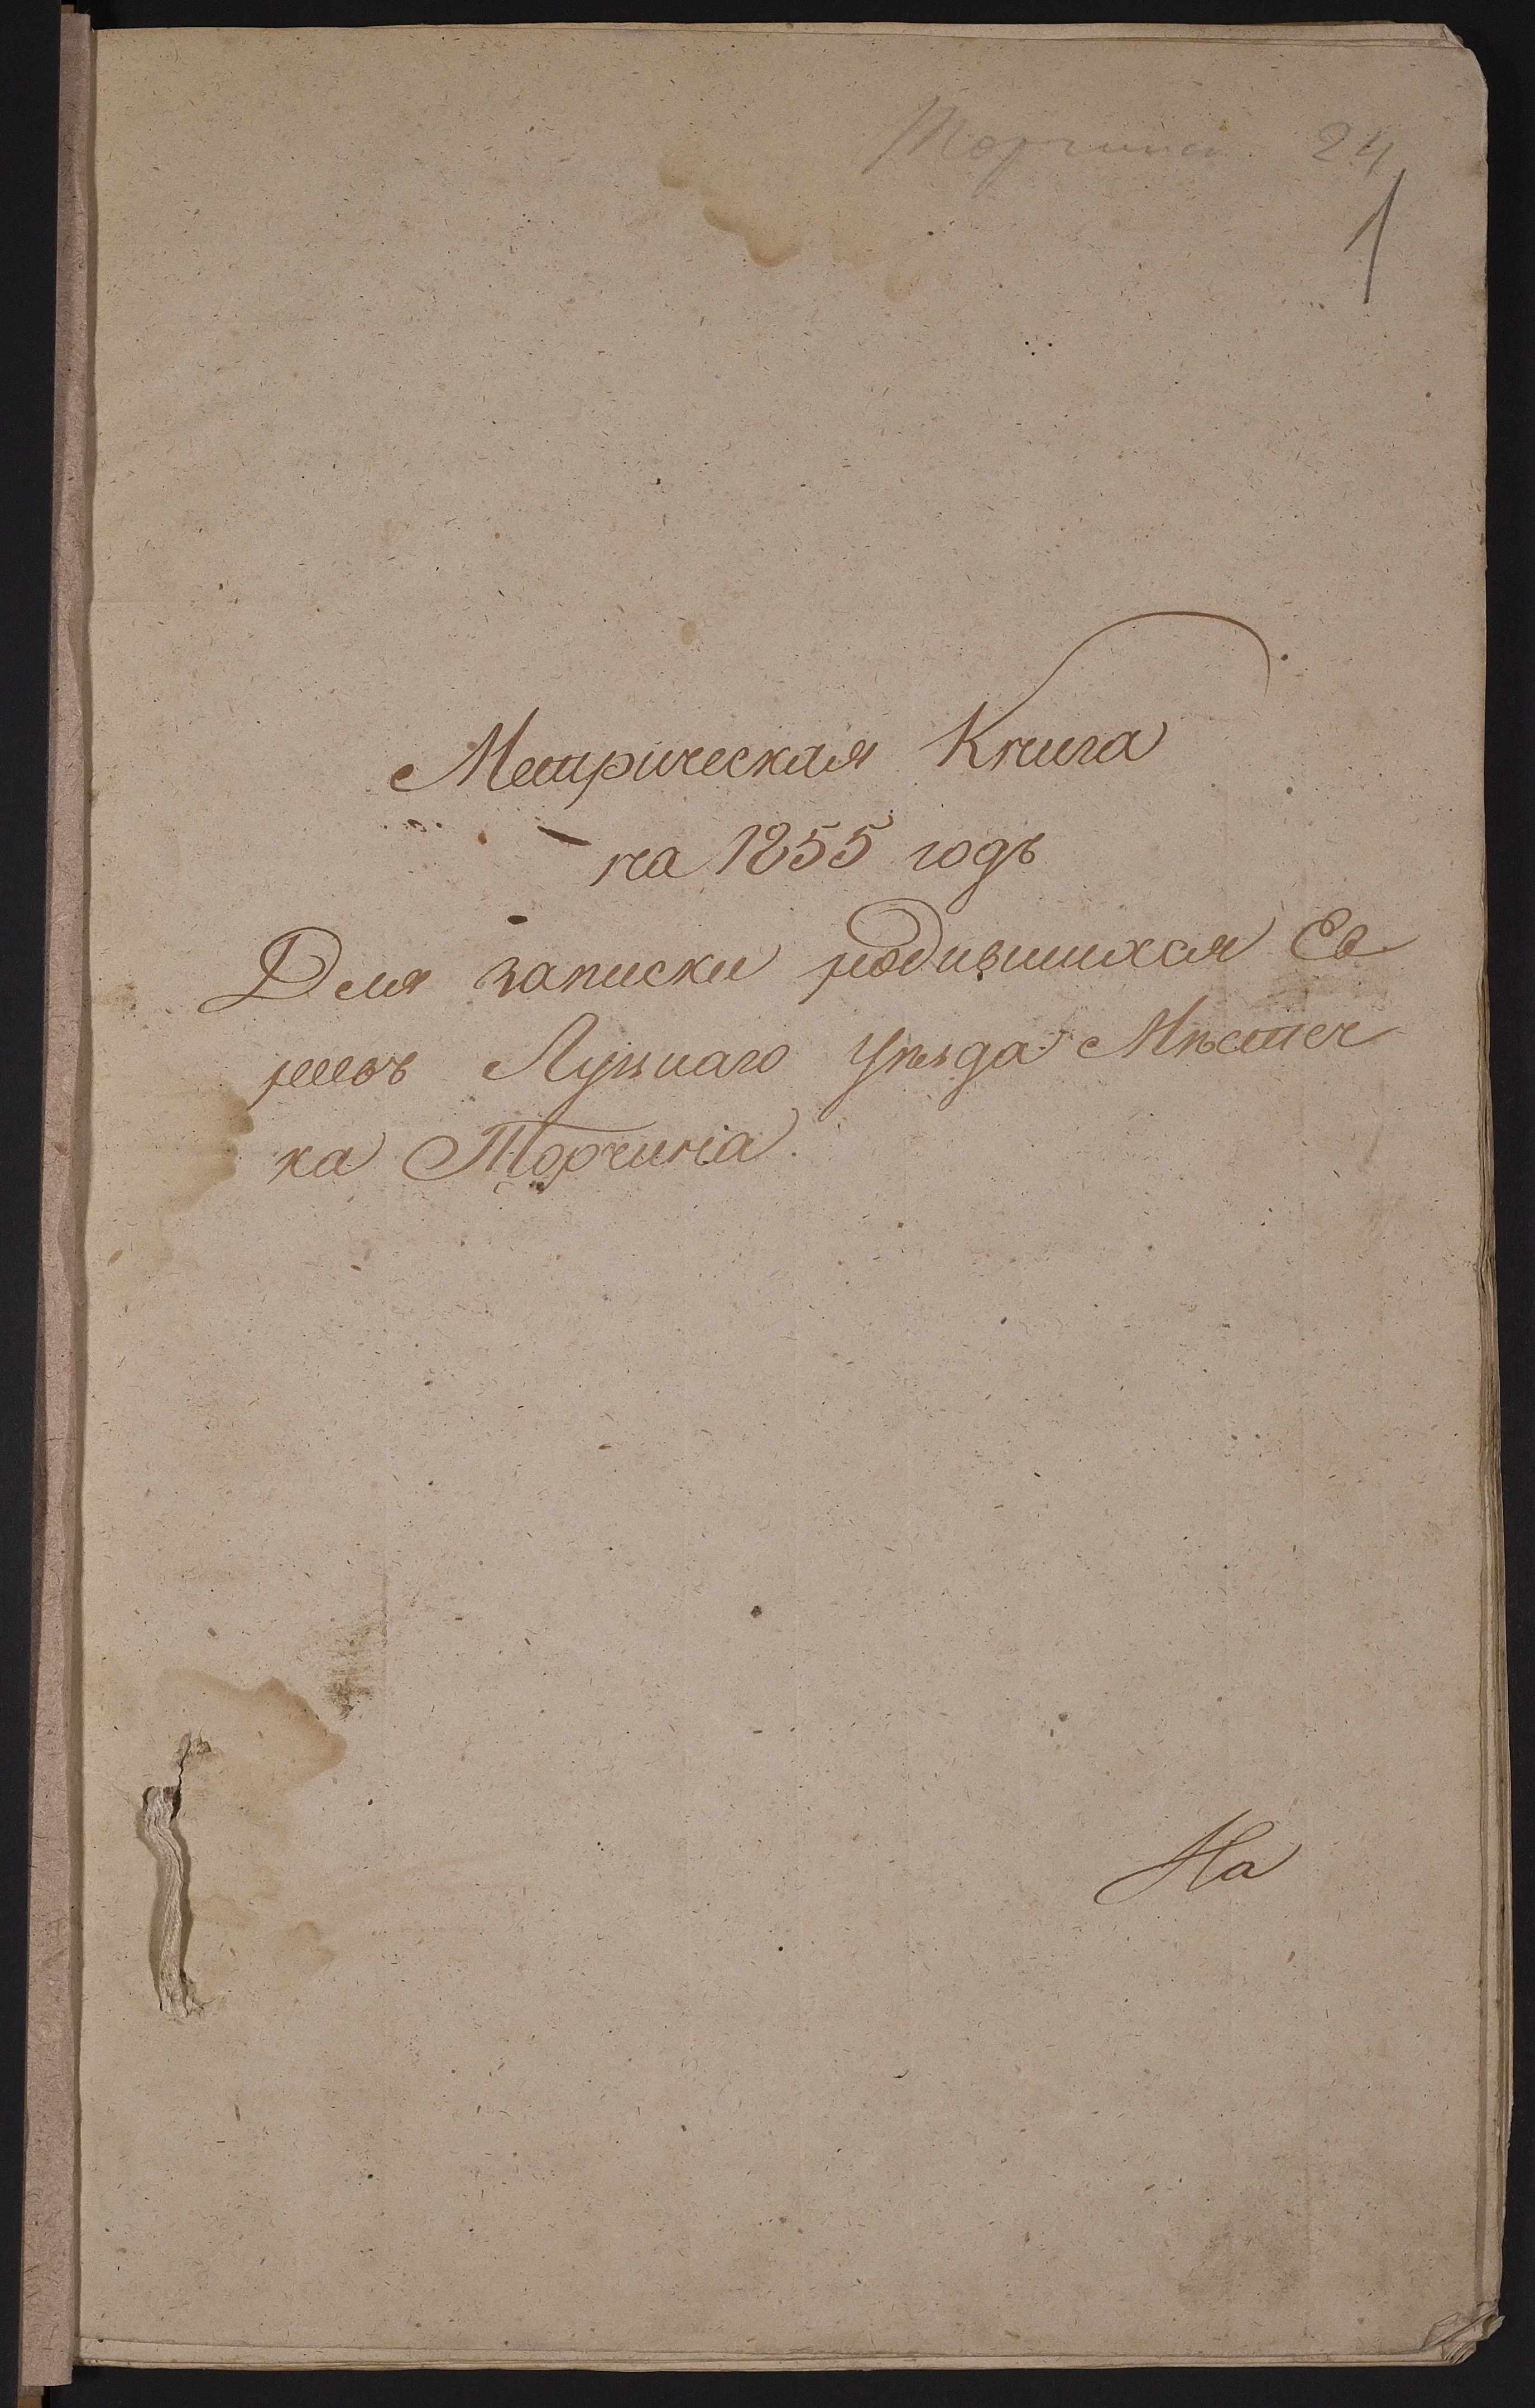 Торчинъ. 24
1
Метрическая Книга
на 1855 годъ
Для записки родившихся Ев
реевъ Луцкаго Уѣзда Мѣстеч
ка Торчина.
На